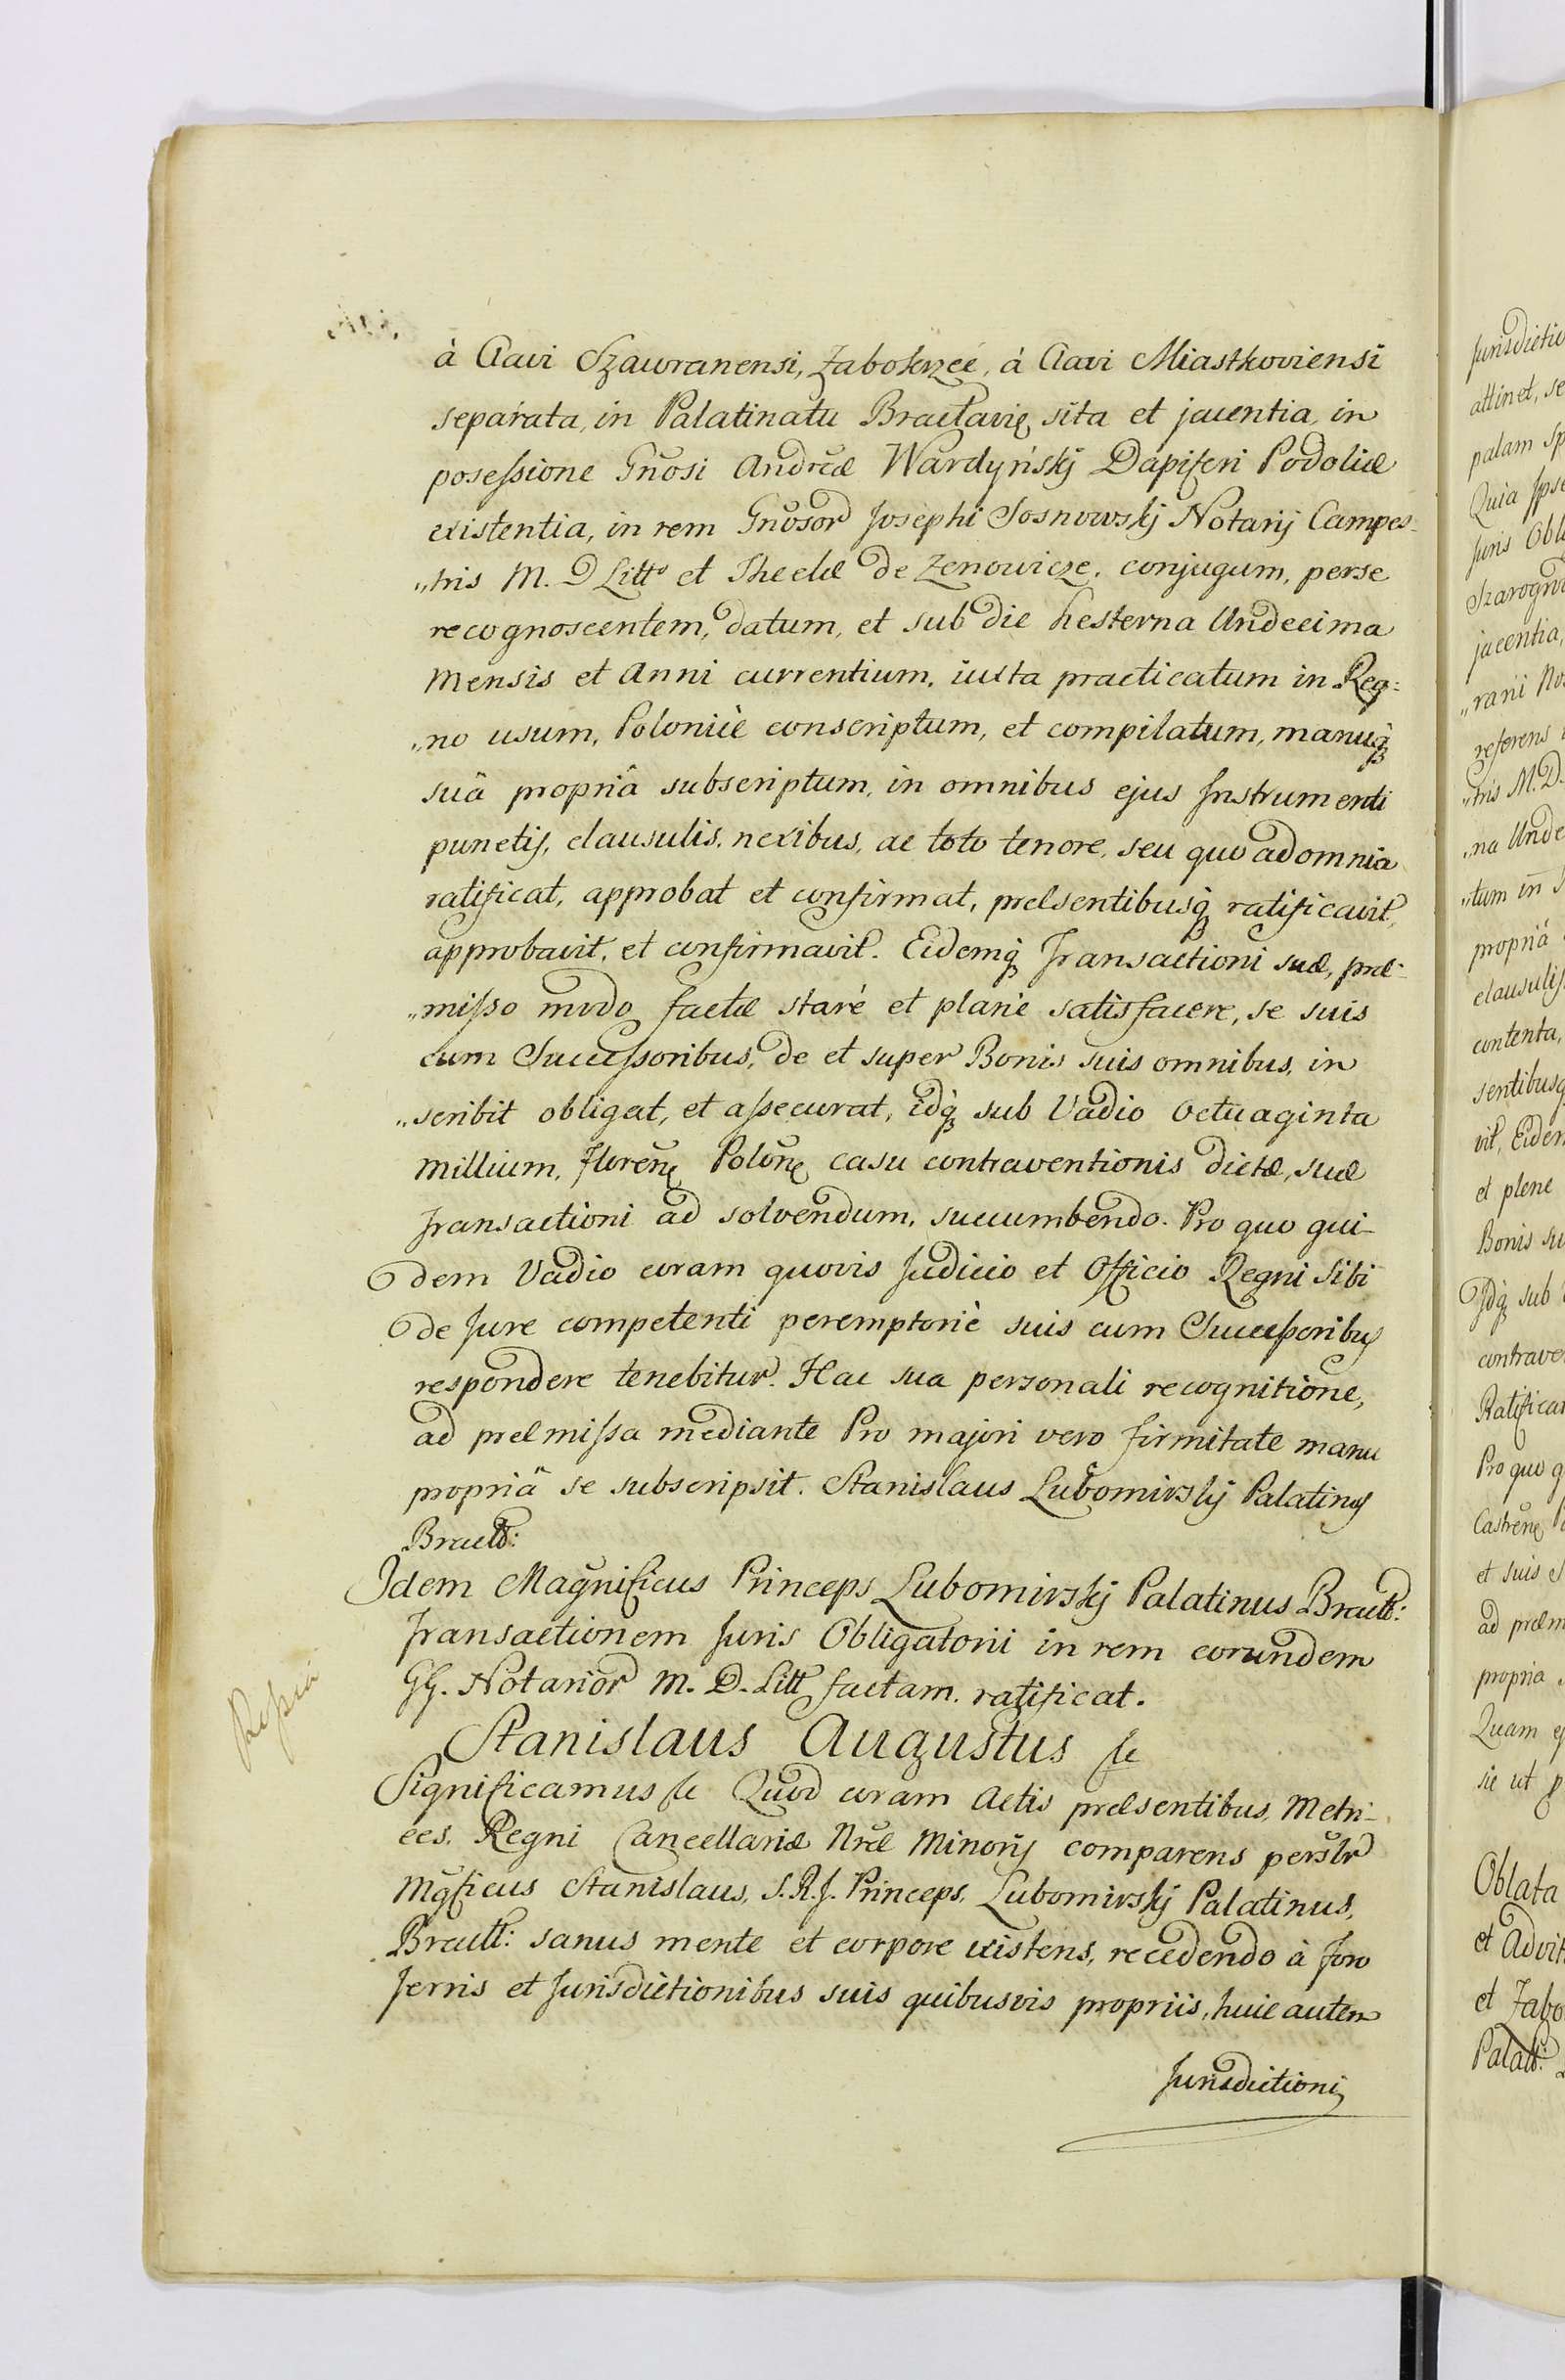 à Clavi Szawranensi, Zabokrzee, à Clavi Miastkoviensi
separata, in Palatinatu Braclavię sita et jacentia, in
posessione Gñosi Andreæ Wardyńskj Dapiferi Podoliæ
existentia, in rem Gñosor Josephi Sosnowskj Notarij Campes-
„tris M. D Litt° et Theclæ de Zenowicze, conjugum, perse
recognoscentem, datum, et sub die hesterna Undecima
Mensis et Anni currentium, iuxta practicatum in Reg:
„no usum, Polonicè conscriptum, et compilatum, manuq̃
suâ propriâ subscriptum, in omnibus ejus Instrumenti
punctis, clausulis, nexibus, ac toto tenore, seu quo ad omnia
ratificat, approbat et confirmat, præsentibusq̃ ratificavit,
approbavit, et confirmavit. Eidemq̃ Transactioni suæ, præ-
„misso modo factæ staré et planè satisfacere, se suis
cum Successoribus, de et super Bonis suis omnibus, in
„scribit obligat, et assecurat, idq̃ sub Vadio Octuaginta
Millium, florenę Polonę casu contraventionis dictæ, suæ
Transactioni ad solvendum, succumbendo. Pro quo qui-
dem Vadio coram quovis Judicio et Officio Regni Sibi
de Jure competenti peremptoriè suis cum Successoribus
respondere tenebitur. Hac sua personali recognitione,
ad præmissa mediante Pro majori vero firmitate manu
propriâ se subscripsit. Stanislaus Lubomirskj Palatinus
Bracłł:
Idem Magnificus Princeps Lubomirskj Palatinus Bracłł:
Transactionem Juris Obligatorii in rem eorundem
GG. Notarior M. D. Litt factam ratificat.
Stanislaus Augustus &c
Significamus &c Quod coram Actis præsentibus, Metri-
ces. Regni Cancellariæ Nræ Minorīs comparens persłr
Mgficus Stanislaus, S. R. J. Princeps, Lubomirskj Palatinus,
Bracłł: sanus mente et corpore existens, recedendo à foro
Terris et Jurisdictionibus suis quibusvis propriis, huic autem
Jurisdictioni
Jurisdictio
attinet, se
palam sp
Quia Ipse
Juris Obl
Szarogro
jacentia,
„rani No
referens
„tris M. D.
„na Unde
„tum in
propriâ
clausulis
contenta,
sentibusq
vit, Eidem
et plene
Bonis su
Idq̃ sub
contrave
Ratificat
Pro quo q
Castrenę
et suis S
ad præm
propria
Quam e
sic ut p
Oblata
et Advit
et Zabo
Palatt: